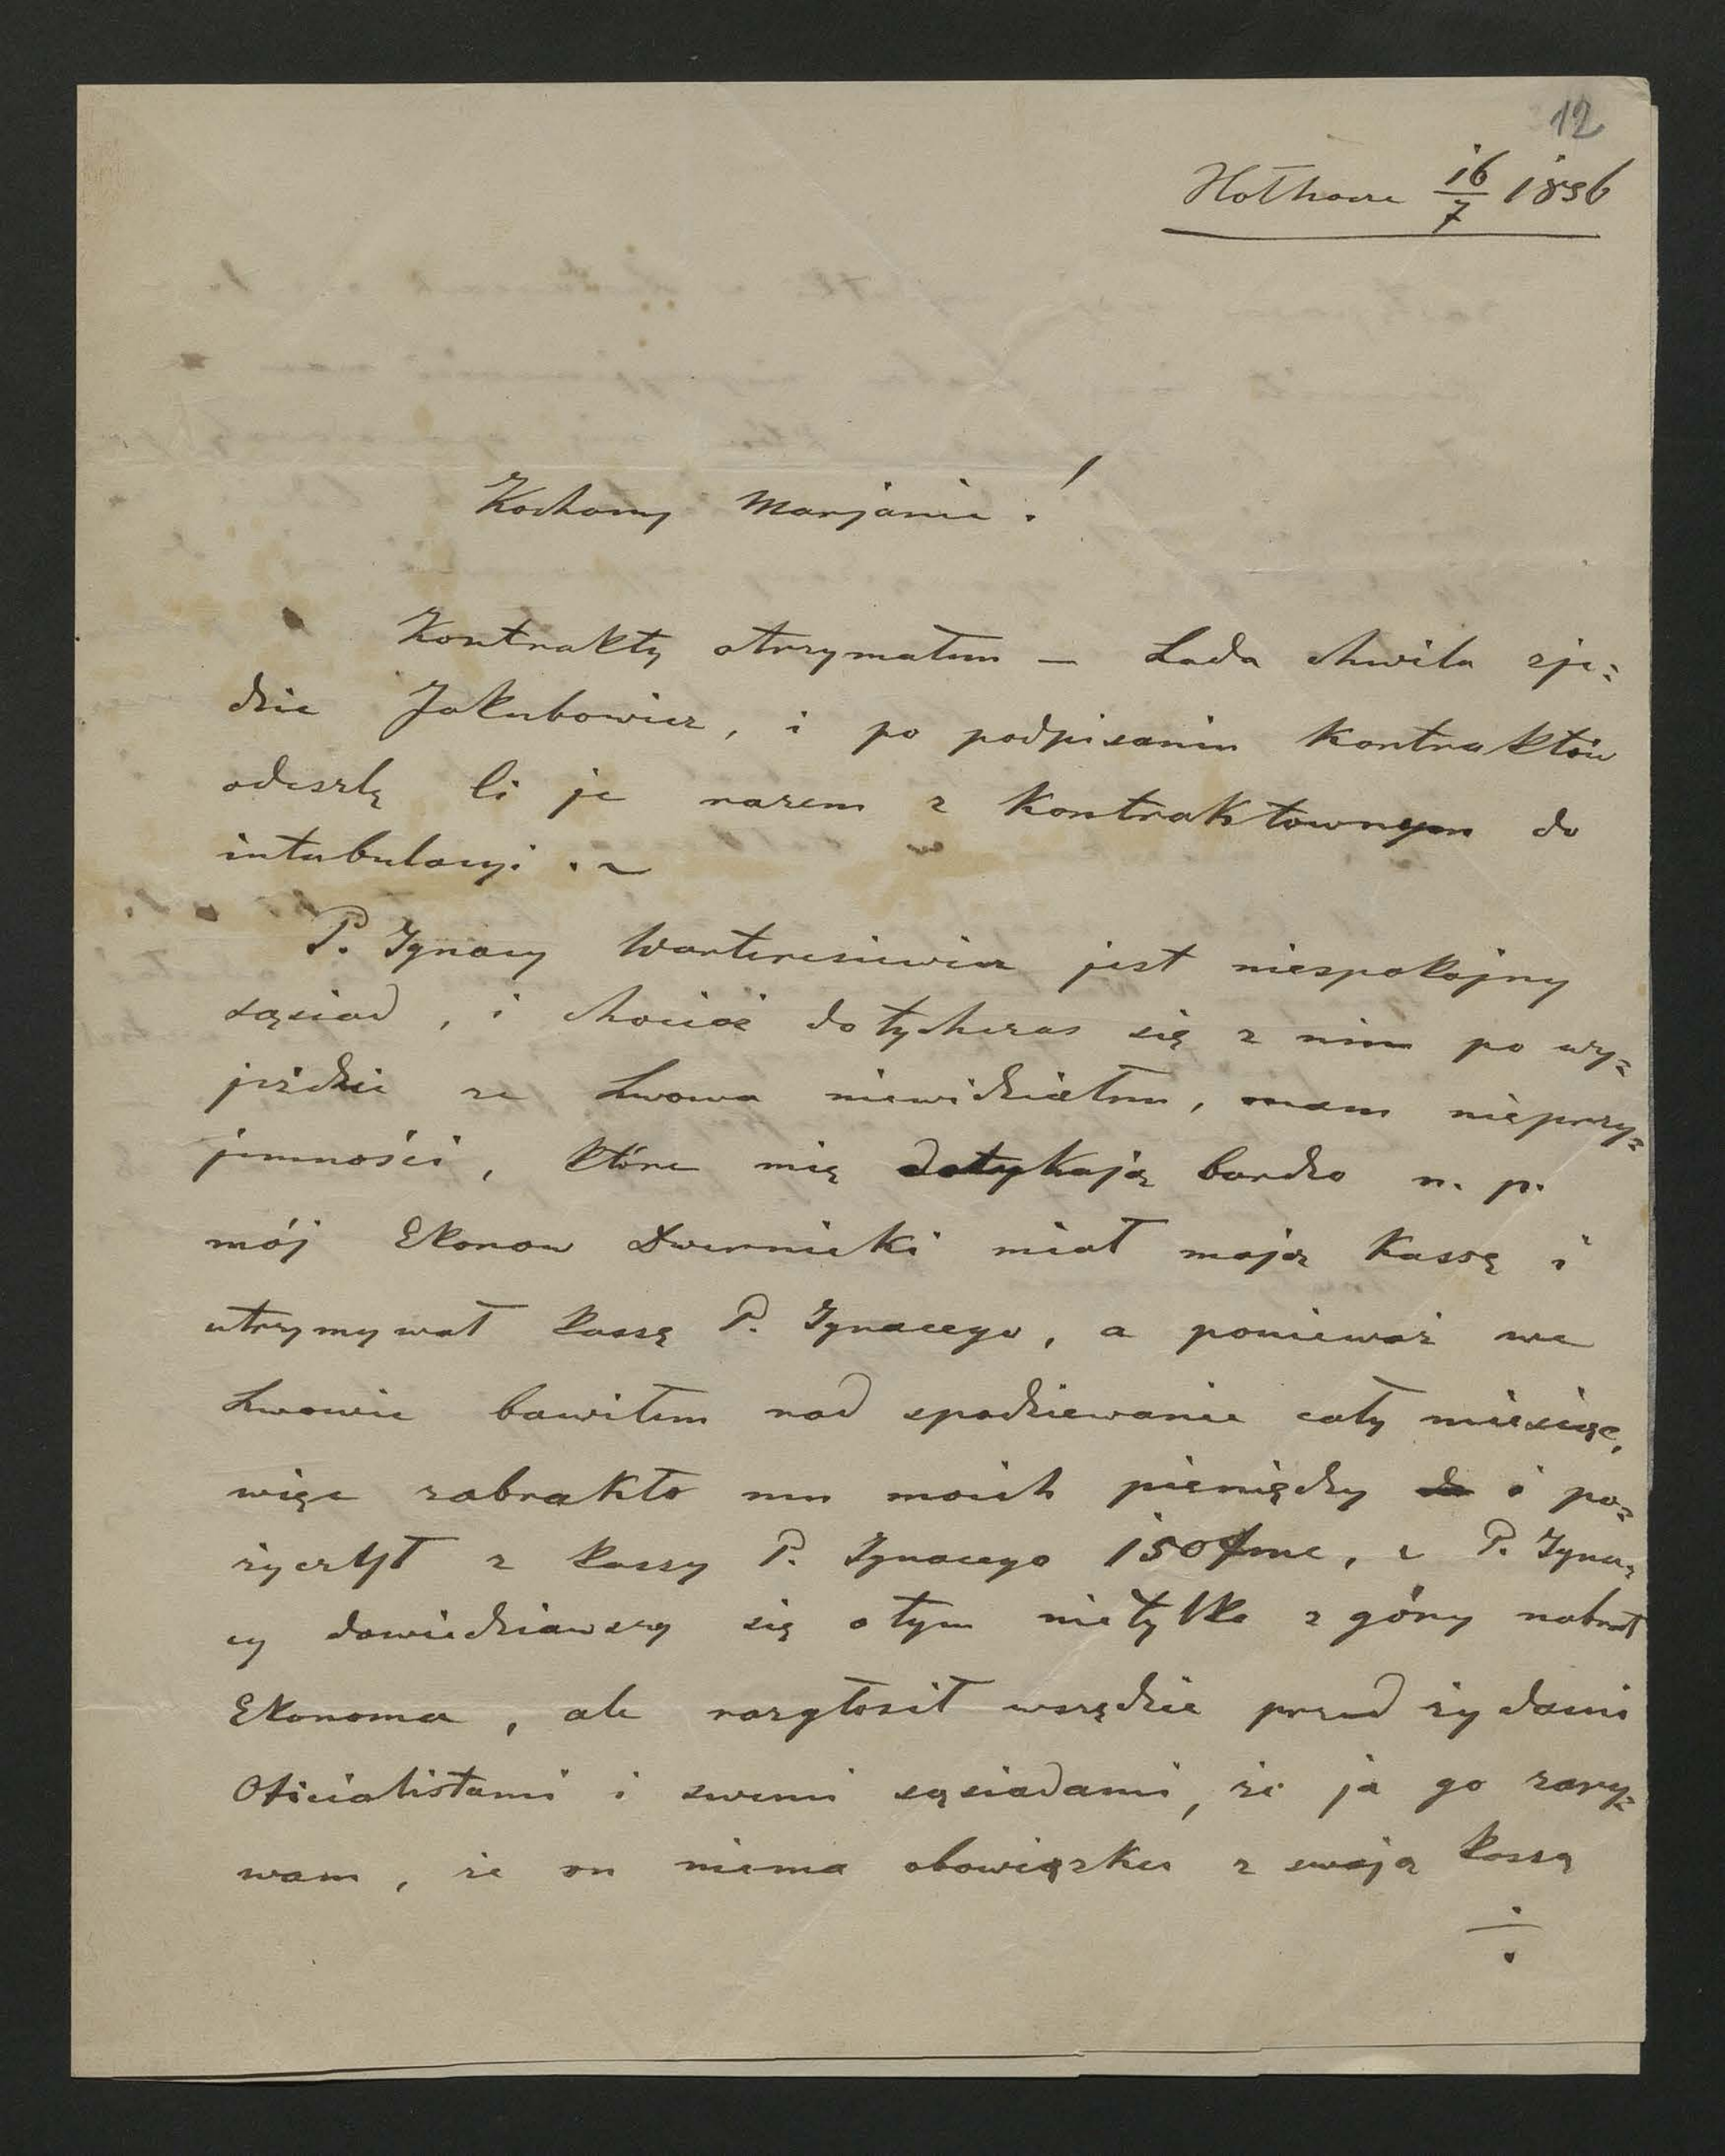 12
16/7 1896
Kochany Marjanie!
Kontrakty otrzymałem — Lada chwila zje=
dzie Jakubowicz, i po podpisaniu kontraktów
odeszlę Ci je razem z kontraktownym do
intabulacyi. ~
P. Ignacy Warteresiewicz jest niespokojny
sąsiad, i chociaż dotychczas się z nim po wy=
jeździe ze Lwowa niewidziałem, mam nieprzy=
jemności, które mię dotykają bardzo n. p.
mój Ekonom Dwernicki miał moją Kassę i
utrzymywał kassę P. Ignacego, a ponieważ we
Lwowie bawiłem nad spodziewanie cały miesiąc,
więc zabrakło mu moich pieniędzy i po=
życzył z kassy P. Ignacego 150, a P. Igna=
cy dowiedziawszy się o tym nietylko z góry nabrał
Ekonoma, ale rozgłosił wszędzie przed żydami
Oficialistami i swemi sąsiadami, że ja go zary=
wam, że on niema obowiązku z swoją kassą
÷